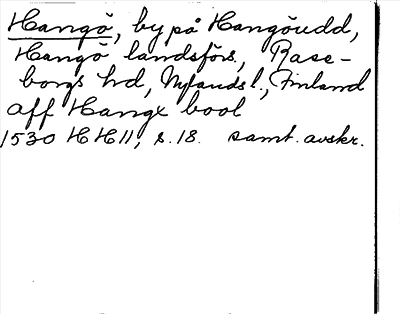 Hangö, by på Hangöudd,
Hangö landsförs., Rase-
borgs hd, Nylands l., Finland
aff Hangx bool
1530 HH II, s. 18. samt. avskr.